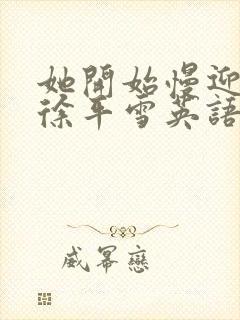 她開始慢迎
徐平雪英語
威幂戀